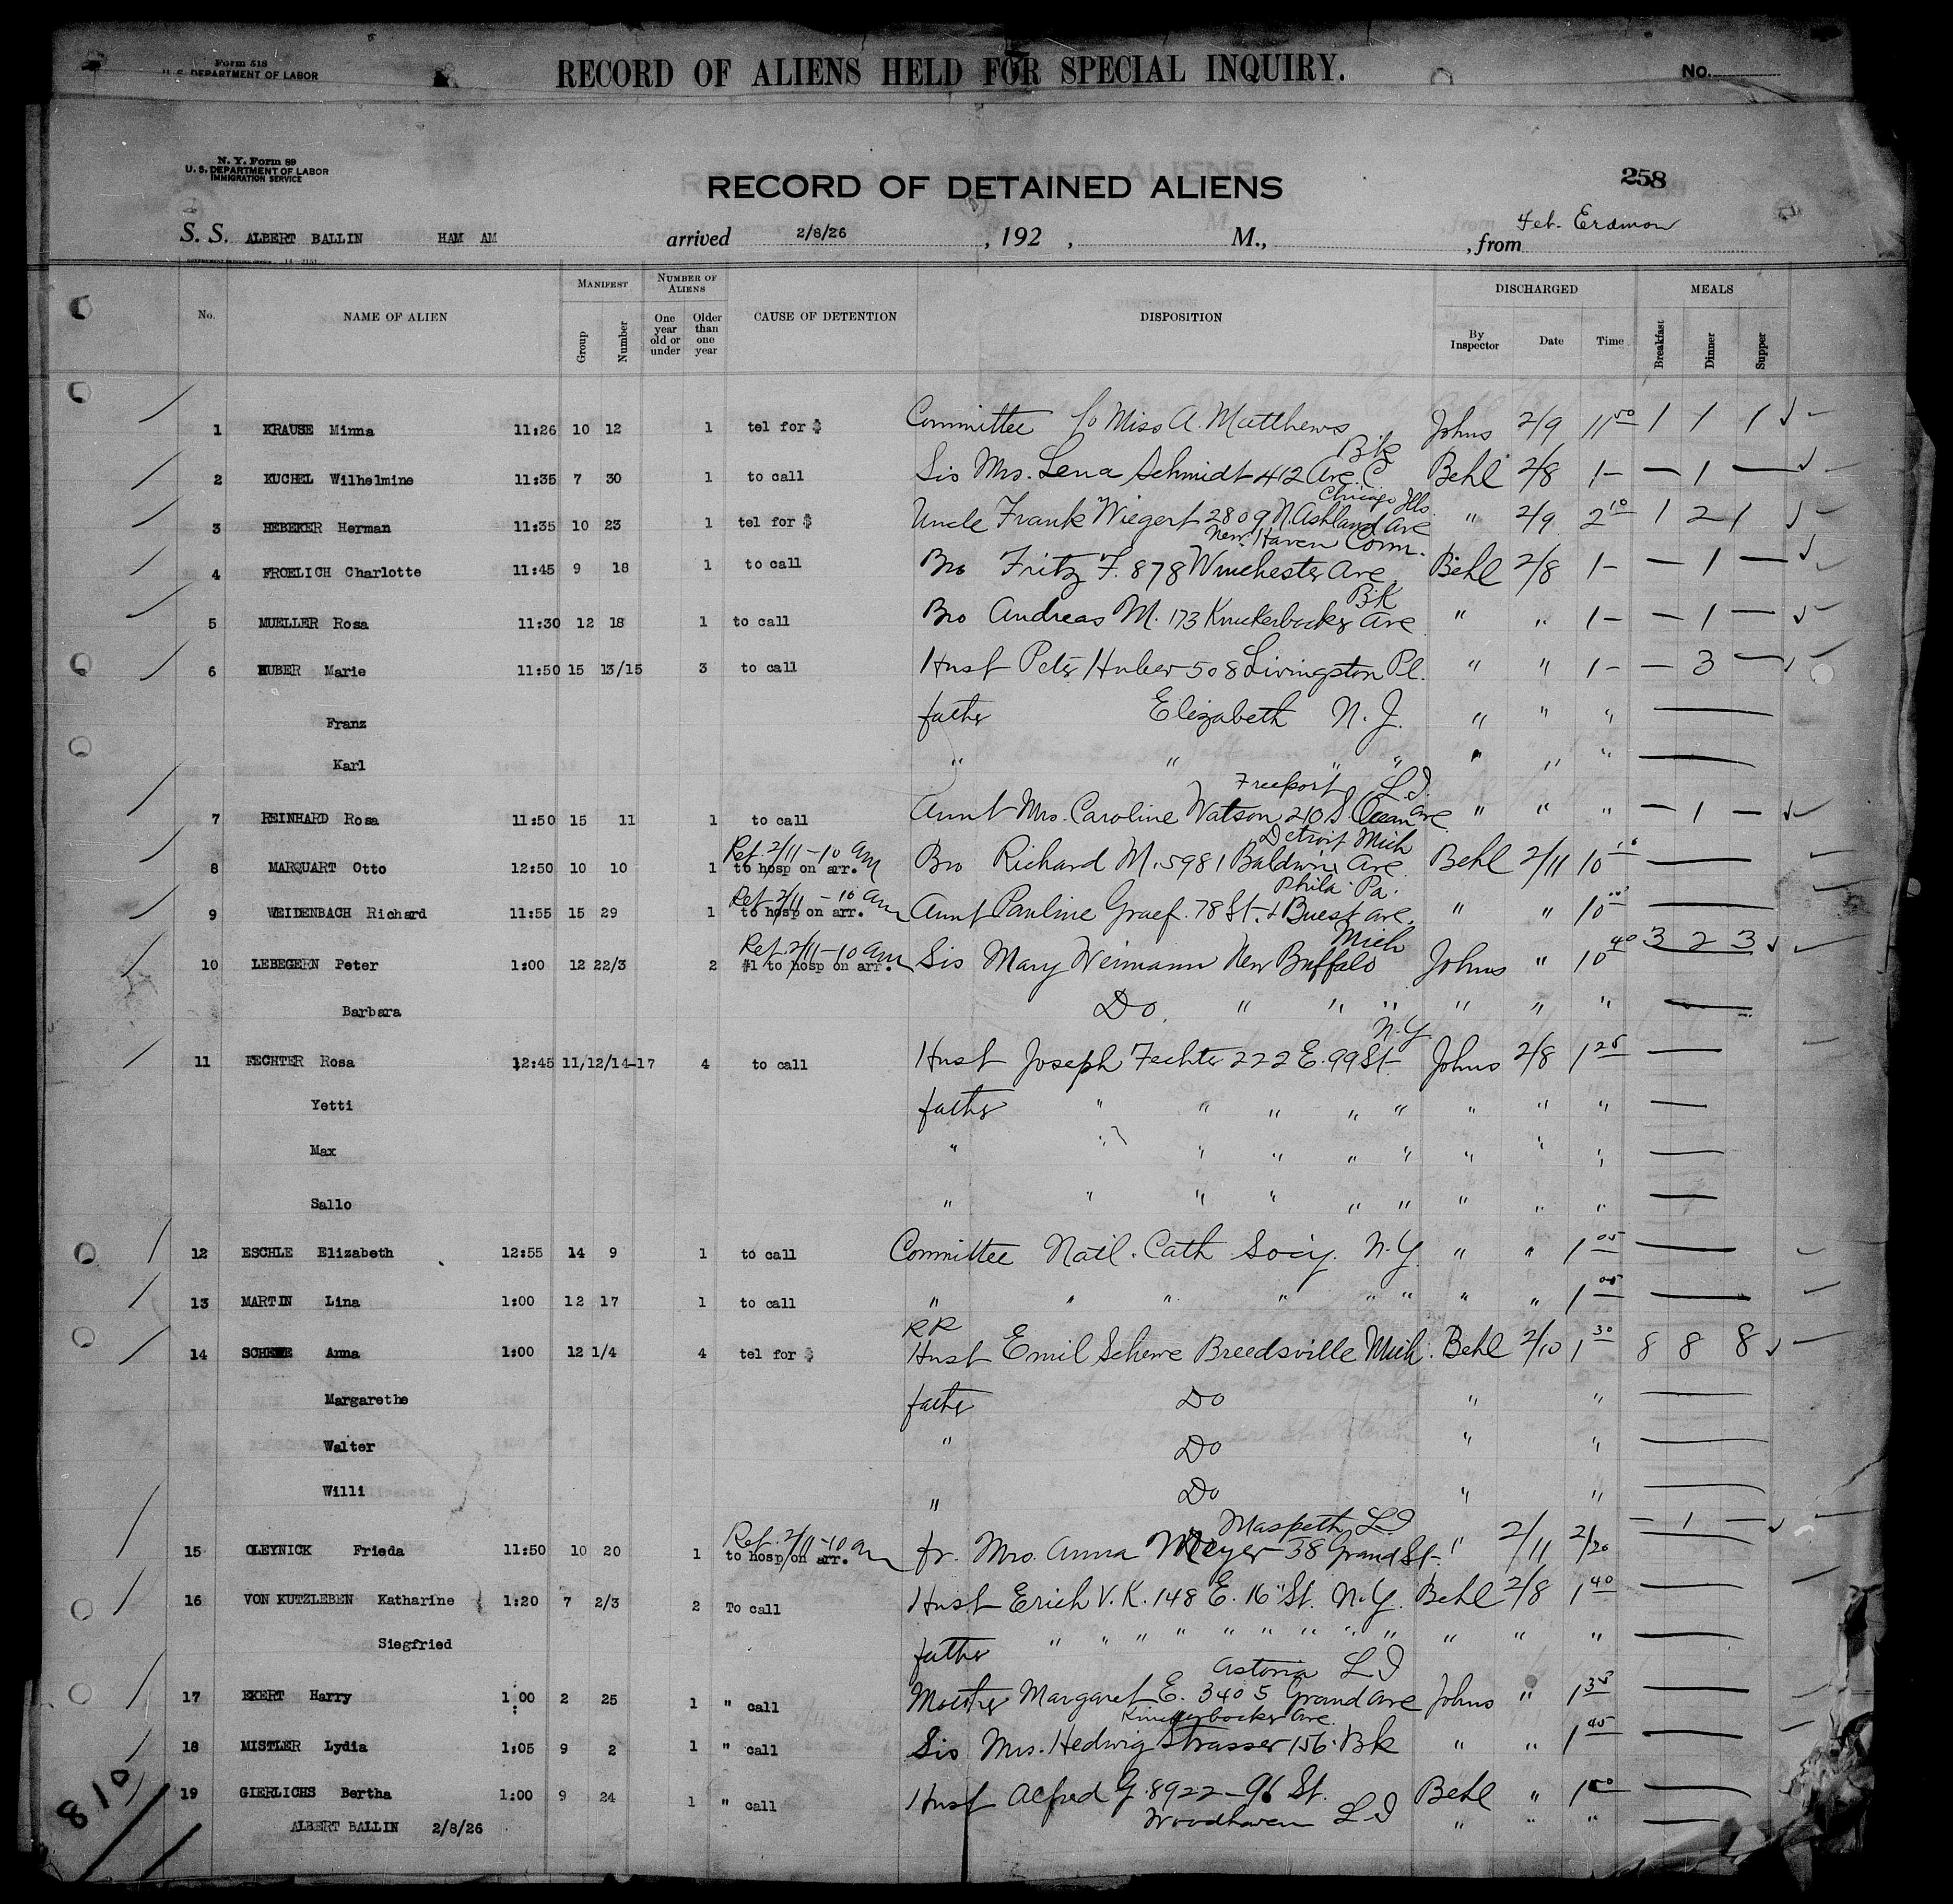 Form 518
U. S. DEPARTMENT OF LABOR
RECORD OF ALIENS HELD FOR SPECIAL INQUIRY.
No.
N. Y. Form 89
U. S. DEPARTMENT OF LABOR
IMMIGRATION SERVICE
RECORD OF DETAINED ALIENS
258
S. S. ALBERT BALLIN HAM AM arrived 2/8/26, 192 , M., , from Feb. Erdmon
No. NAME OF ALIEN MANIFEST Group Number NUMBER OF ALIENS One year old or under Older than one year CAUSE OF DETENTION DISPOSITION DISCHARGED By Inspector Date Time MEALS Breakfast Dinner Supper
1 KRAUSE Minna 11:26 10 12 1 tel for $ Committee c/o Miss A. Matthews Johns 2/9 11 50 1 1 1
Bk
2 KUCHEL Wilhelmine 11:35 7 30 1 to call Sis Mrs. Lena Schmidt 412 Ave. C Behl 2/8 1— — 1 —
Chicago Ills.
3 HEBEKER Herman 11:35 10 23 1 tel for $ Uncle Frank Wiegert 2809 N. Ashland Ave " 2/9 2 10 1 2 1
New Haven Conn.
4 FROELICH Charlotte 11:45 9 18 1 to call Bro Fritz F. 878 Winchester Ave Behl 2/8 1— — 1 —
BK
5 MUELLER Rosa 11:30 12 18 1 to call Bro Andreas M. 173 Knickerbocker Ave " " 1— — 1 —
6 HUBER Marie 11:50 15 13/15 3 to call Husb Peter Huber 508 Livingston Pl. " " 1— — 3 —
Franz father Elizabeth N. J. " " " —
Karl " " " " " " " —
Freeport L.I.
7 REINHARD Rosa 11:50 15 11 1 to call Aunt Mrs. Caroline Watson 210 S. Ocean ave. " " " — 1 —
Ret. 2/11-10 am Detroit Mich
8 MARQUART Otto 12:50 10 10 1 to hosp on arr. Bro Richard M. 5981 Baldwin Ave Behl 2/11 10 —
Ret 2/11 - 10 am Phila. Pa.
9 WEIDENBACH Richard 11:55 15 29 1 to hosp on arr. Aunt Pauline Graef. 78 St. & Buest ave. " " 10 00 —
Ret. 2/11-10 am Mich
10 LEBEGERN Peter 1:00 12 22/3 2 #1 to hosp on arr. Sis Mary Weimann New Buffalo Johns " 10 40 3 2 3
Barbara Do. " " " " " " —
N.Y
11 FECHTER Rosa 12:45 11,12/14-17 4 to call Husb Joseph Fechter 222 E. 99 St- Johns 2/8 1 25 —
Yetti father " " " " " " " " —
Max " " " " " " " " " —
Sallo " " " " " " " " " —
12 ESCHLE Elizabeth 12:55 14 9 1 to call Committee Natl. Cath Socy. N.Y. " " 1 05 —
13 MARTIN Lina 1:00 12 17 1 to call " " " " " " " " 1 05 —
RR
14 SCHEWE Anna 1:00 12 1/4 4 tel for $ Husb Emil Schewe Breedsville Mich. Behl 2/10 1 30 8 8 8
Margarethe father Do " " —
Walter " Do " " —
Willi " Do " " —
Ret. 2/11-10 am Maspeth LI
15 OLEYNICK Frieda 11:50 10 20 1 to hosp on arr. fr. Mrs. Anna Meyer 38 Grand St. " 2/11 2/20 — 1 —
16 VON KUTZLEBEN Katharine 1:20 7 2/3 2 To call Husb Erich V. K. 148 E. 16" St. N.Y. Behl 2/8 1 40 —
Siegfried father " " " " " " " " " " " " —
Astoria LI
17 EKERT Harry 1:00 2 25 1 " call Mother Margaret E. 3405 Grand Ave Johns " 1 35 —
Knickerbocker Ave.
18 MISTLER Lydia 1:05 9 2 1 " call Sis Mrs. Hedwig Strasser 156. Bk " " 1 45 —
19 GIERLICHS Bertha 1:00 9 24 1 " call Husb Alfred G. 8922 - 96 St. Behl " 1 50 —
ALBERT BALLIN 2/8/26 Woodhaven LI " " " —
810